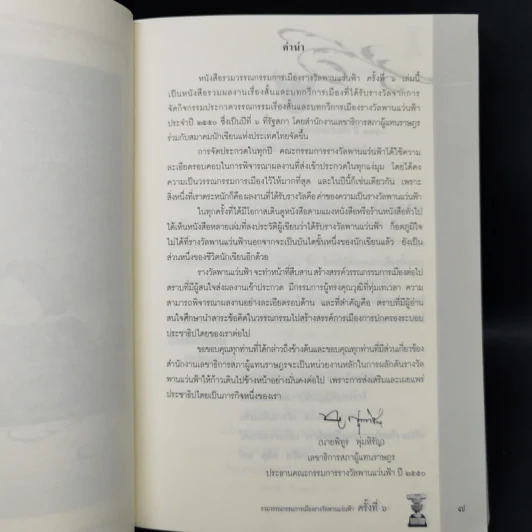 คำนำ
หนังสือรวมวรรณกรรมการเมืองรางวัลพานแว่นฟ้า ครั้งที่ ๖ เล่มนี้
เป็นหนังสือรวมผลงานเรื่องสั้นและบทกวีการเมืองที่ได้รับรางวัลจากการ
จัดกิจกรรมประกวดวรรณกรรมเรื่องสั้นและบทกวีการเมืองรางวัลพานแว่นฟ้า
ประจำปี ๒๕๕๐ ซึ่งเป็นปีที่ ๖ ที่รัฐสภา โดยสำนักงานเลขาธิการสภาผู้แทนราษฎร
ร่วมกับสมาคมนักเขียนแห่งประเทศไทยจัดขึ้น
การจัดประกวดในทุกปี คณะกรรมการรางวัลพานแว่นฟ้าได้ใช้ความ
ละเอียดรอบคอบในการพิจารณาผลงานที่ส่งเข้าประกวดในทุกแง่มุม โดยได้คง
ความเป็นวรรณกรรมการเมืองไว้ให้มากที่สุด และในปีนี้ก็เช่นเดียวกัน เพราะ
สิ่งหนึ่งที่เราตระหนักก็คือผลงานที่ได้รับรางวัลคือค่าของความเป็นรางวัลพานแว่นฟ้า
ในทุกครั้งที่ได้มีโอกาสเดินดูหนังสือตามแผงหนังสือหรือร้านหนังสือทั่วไป
ได้เห็นหนังสือหลายเล่มที่ลงประวัติผู้เขียนว่าได้รับรางวัลพานแว่นฟ้า ก็อดภูมิใจ
ไม่ได้ที่รางวัลพานแว่นฟ้านอกจากจะเป็นบันไดขั้นหนึ่งของนักเขียนแล้ว ยังเป็น
ส่วนหนึ่งของชีวิตนักเขียนอีกด้วย
รางวัลพานแว่นฟ้า จะทำหน้าที่สืบสาน สร้างสรรค์วรรณกรรมการเมืองต่อไป
ตราบที่มีผู้สนใจส่งผลงานเข้าประกวด มีกรรมการผู้ทรงคุณวุฒิที่ทุ่มเทเวลา ความ
สามารถพิจารณาผลงานอย่างละเอียดรอบด้าน และที่สำคัญคือ ตราบที่มีผู้อ่าน
สนใจศึกษานำสาระข้อคิดในวรรณกรรมไปสร้างสรรค์การเมืองการปกครองระบอบ
ประชาธิปไตยของเราต่อไป
ขอขอบคุณทุกท่านที่ได้กล่าวถึงข้างต้นและขอบคุณทุกท่านที่มีส่วนเกี่ยวข้อง
สำนักงานเลขาธิการสภาผู้แทนราษฎรจะเป็นหน่วยงานหลักในการผลักดันรางวัล
พานแว่นฟ้าให้ก้าวเดินไปข้างหน้าอย่างมั่นคงต่อไป เพราะการส่งเสริมและเผยแพร่
ประชาธิปไตยเป็นภารกิจหนึ่งของเรา
(นายพิทูร พุ่มหิรัญ)
เลขาธิการสภาผู้แทนราษฎร
ประธานคณะกรรมการรางวัลพานแว่นฟ้า ปี ๒๕๕๐
รวมวรรณกรรมการเมืองรางวัลพานแว่นฟ้า ครั้งที่ ๖
๗